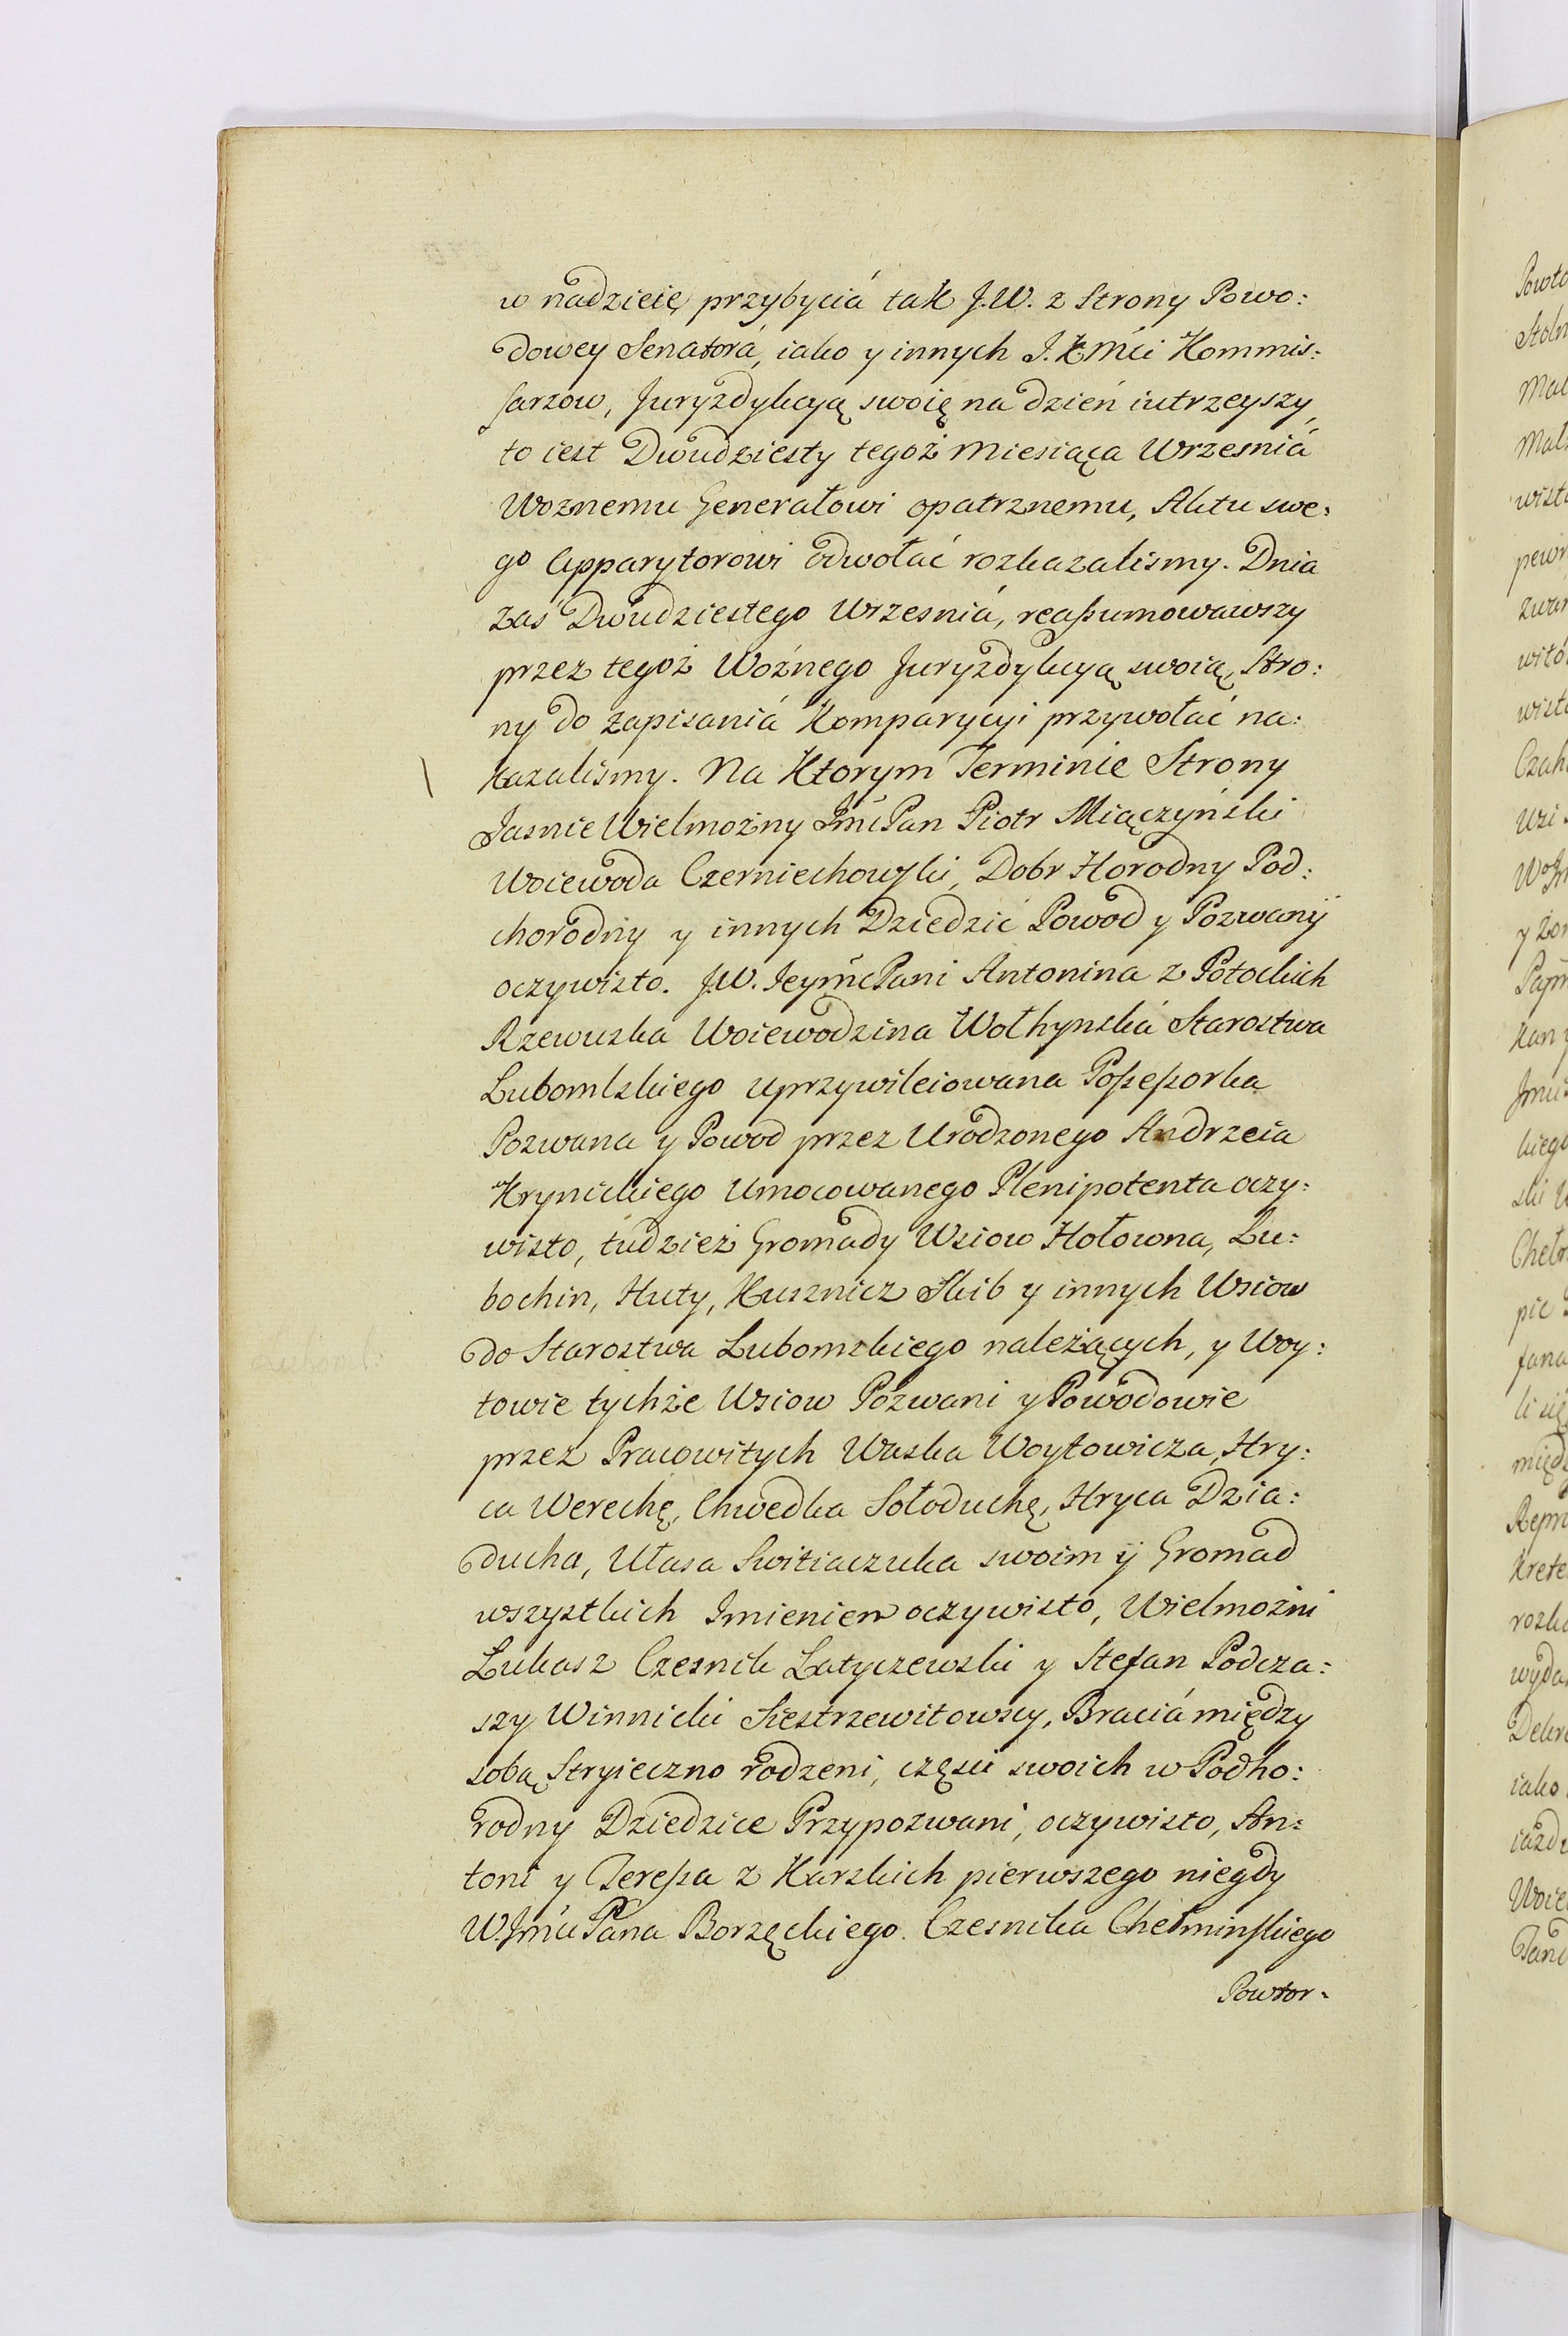 w nadzieię przybyciá tak J.W. z Strony Powo:
dowey Senatorá, iako y innych J. Xmći Kommis:
sarzow, Juryzdykcyą swoię na dzień iutrzeyszy,
to iest Dwudziesty tegoż Miesiąca Wrzesniá
Woznemu Generałowi opatrznemu, Aktu swe:
go Apparytorowi odwołać rozkazalismy. Dnia
zaś Dwudziestego Wrzesniá, reaßumowawszy
przez tegoż Woźnego Juryzdykcyą swoią, Stro:
ny do zapisaniá Komparycyi przywołać na:
kazalismy. Na Ktorym Terminie Strony
Jasnie Wielmożny Jmć Pan Piotr Miączyński
Woiewoda Czerniechowski, Dobr Horodny Pod:
chorodny y innych Dziedzic Powod y Pozwany
oczywisto. J.W. Jeymć Pani Antonina z Potockich
Rzewuska Woiewodzina Wołhynská Starostwa
Lubomlskiego uprzywileiowana Poßeßorka
Pozwana y Powod przez Urodzonego Andrzeia
Krynickiego Umocowanego Plenipotenta oczy:
wisto, tudzież Gromady Wsiow Hołowna, Lu:
bochin, Huty, Kusznicz Skib y innych Wsiow
do Starostwa Lubomskiego należących, y Woy:
towie tychże Wsiow Pozwani y Powodowie
przez Pracowitych Waska Woytowicza, Hry:
ca Werechę, Chwedka Sołoduchę, Hryca Dzia:
ducha, Ułasa Switiaczuka swoim y Gromad
wszystkich Imieniem oczywisto, Wielmożni
Lukasz Czesnik Latyczewski y Stefan Podcza:
szy Winnicki Siestrzewitowscy, Braciá między
sobą Stryieczno rodzeni, części swoich w Podho:
rodny Dziedzice Przypozwani, oczywisto, An:
toni y Tereßa z Karskich pierwszego niegdy
W. Jmći Pana Borzęckiego Czesnika Chełminskiego
Powtor: